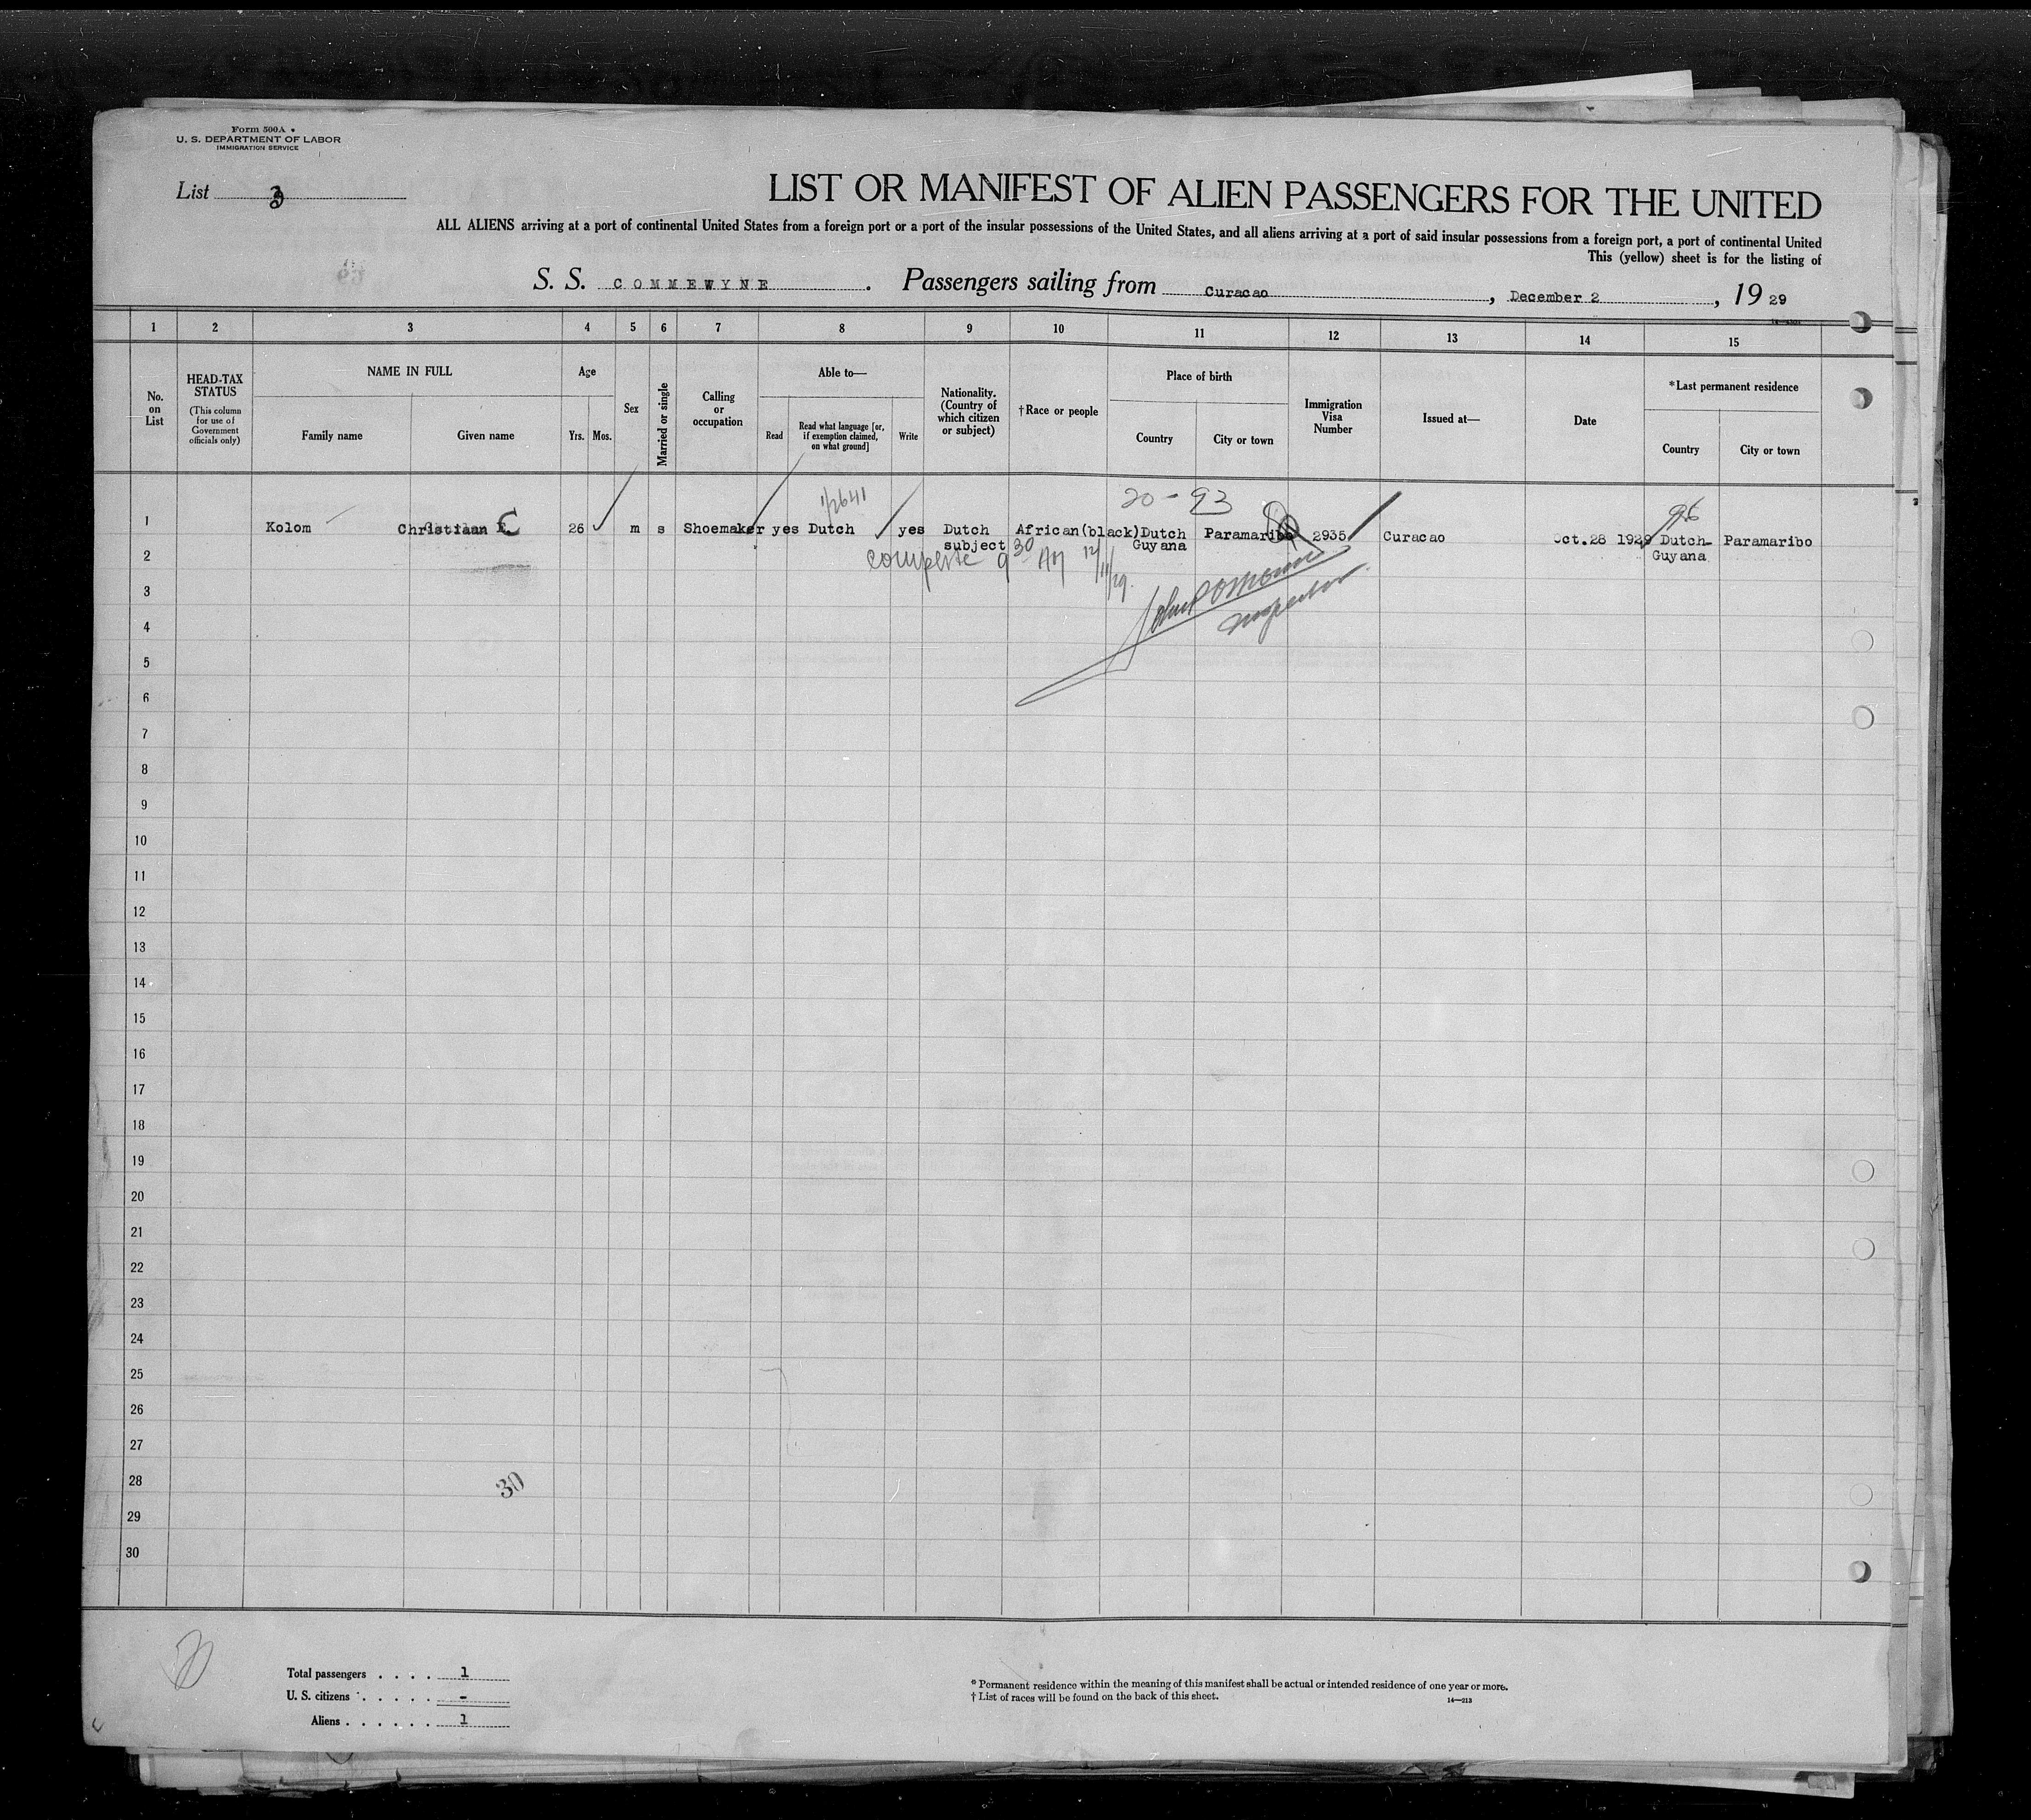 Form 500A
U. S. DEPARTMENT OF LABOR
IMMIGRATION SERVICE
List 3
LIST OR MANIFEST OF ALIEN PASSENGERS FOR THE UNITED
ALL ALIENS arriving at a port of continental United States from a foreign port or a port of the insular possessions of the United States, and all aliens arriving at a port of said insular possessions from a foreign port, a port of continental United
This (yellow) sheet is for the listing of
S. S. COMMEWYNE. Passengers sailing from Curacao, December 2, 19 29
1 2 3 4 5 6 7 8 9 10 11 12 13 14 15
No. on List
HEAD-TAX STATUS
(This column for use of Government officials only)
NAME IN FULL
Family name
Given name
Age
Yrs.
Mos.
Sex
Married or single
Calling or occupation
Able to—
Read
Read what language [or, if exemption claimed, on what ground]
Write
Nationality. (Country of which citizen or subject)
†Race or people
Place of birth
Country
City or town
Immigration Visa Number
Issued at—
Date
*Last permanent residence
Country
City or town
20-93
1/2641
96
1 Kolom Christiaan E. C 26 m s Shoemaker yes Dutch yes Dutch African(black) Dutch Paramaribo 2935 Curacao Oct.28 1929 Dutch Paramaribo
subject Guyana Guyana
2 complete 9 30 AM 12/11/29.
3
Inspector
4
5
6
7
8
9
10
11
12
13
14
15
16
17
18
19
20
21
22
23
24
25
26
27
28
30
29
30
Total passengers . . . . 1
U. S. citizens . . . . . -
Aliens . . . . . . 1
* Permanent residence within the meaning of this manifest shall be actual or intended residence of one year or more.
† List of races will be found on the back of this sheet.
14—213